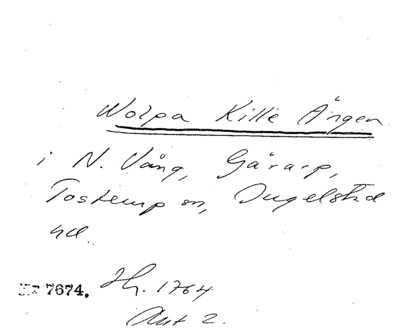 Wolpa Kille Ängen
i N. Vång, Gärarp,
Tosterup sn, Ingelstad
hd.
MF 7674. Hr. 1764
Akt 2.